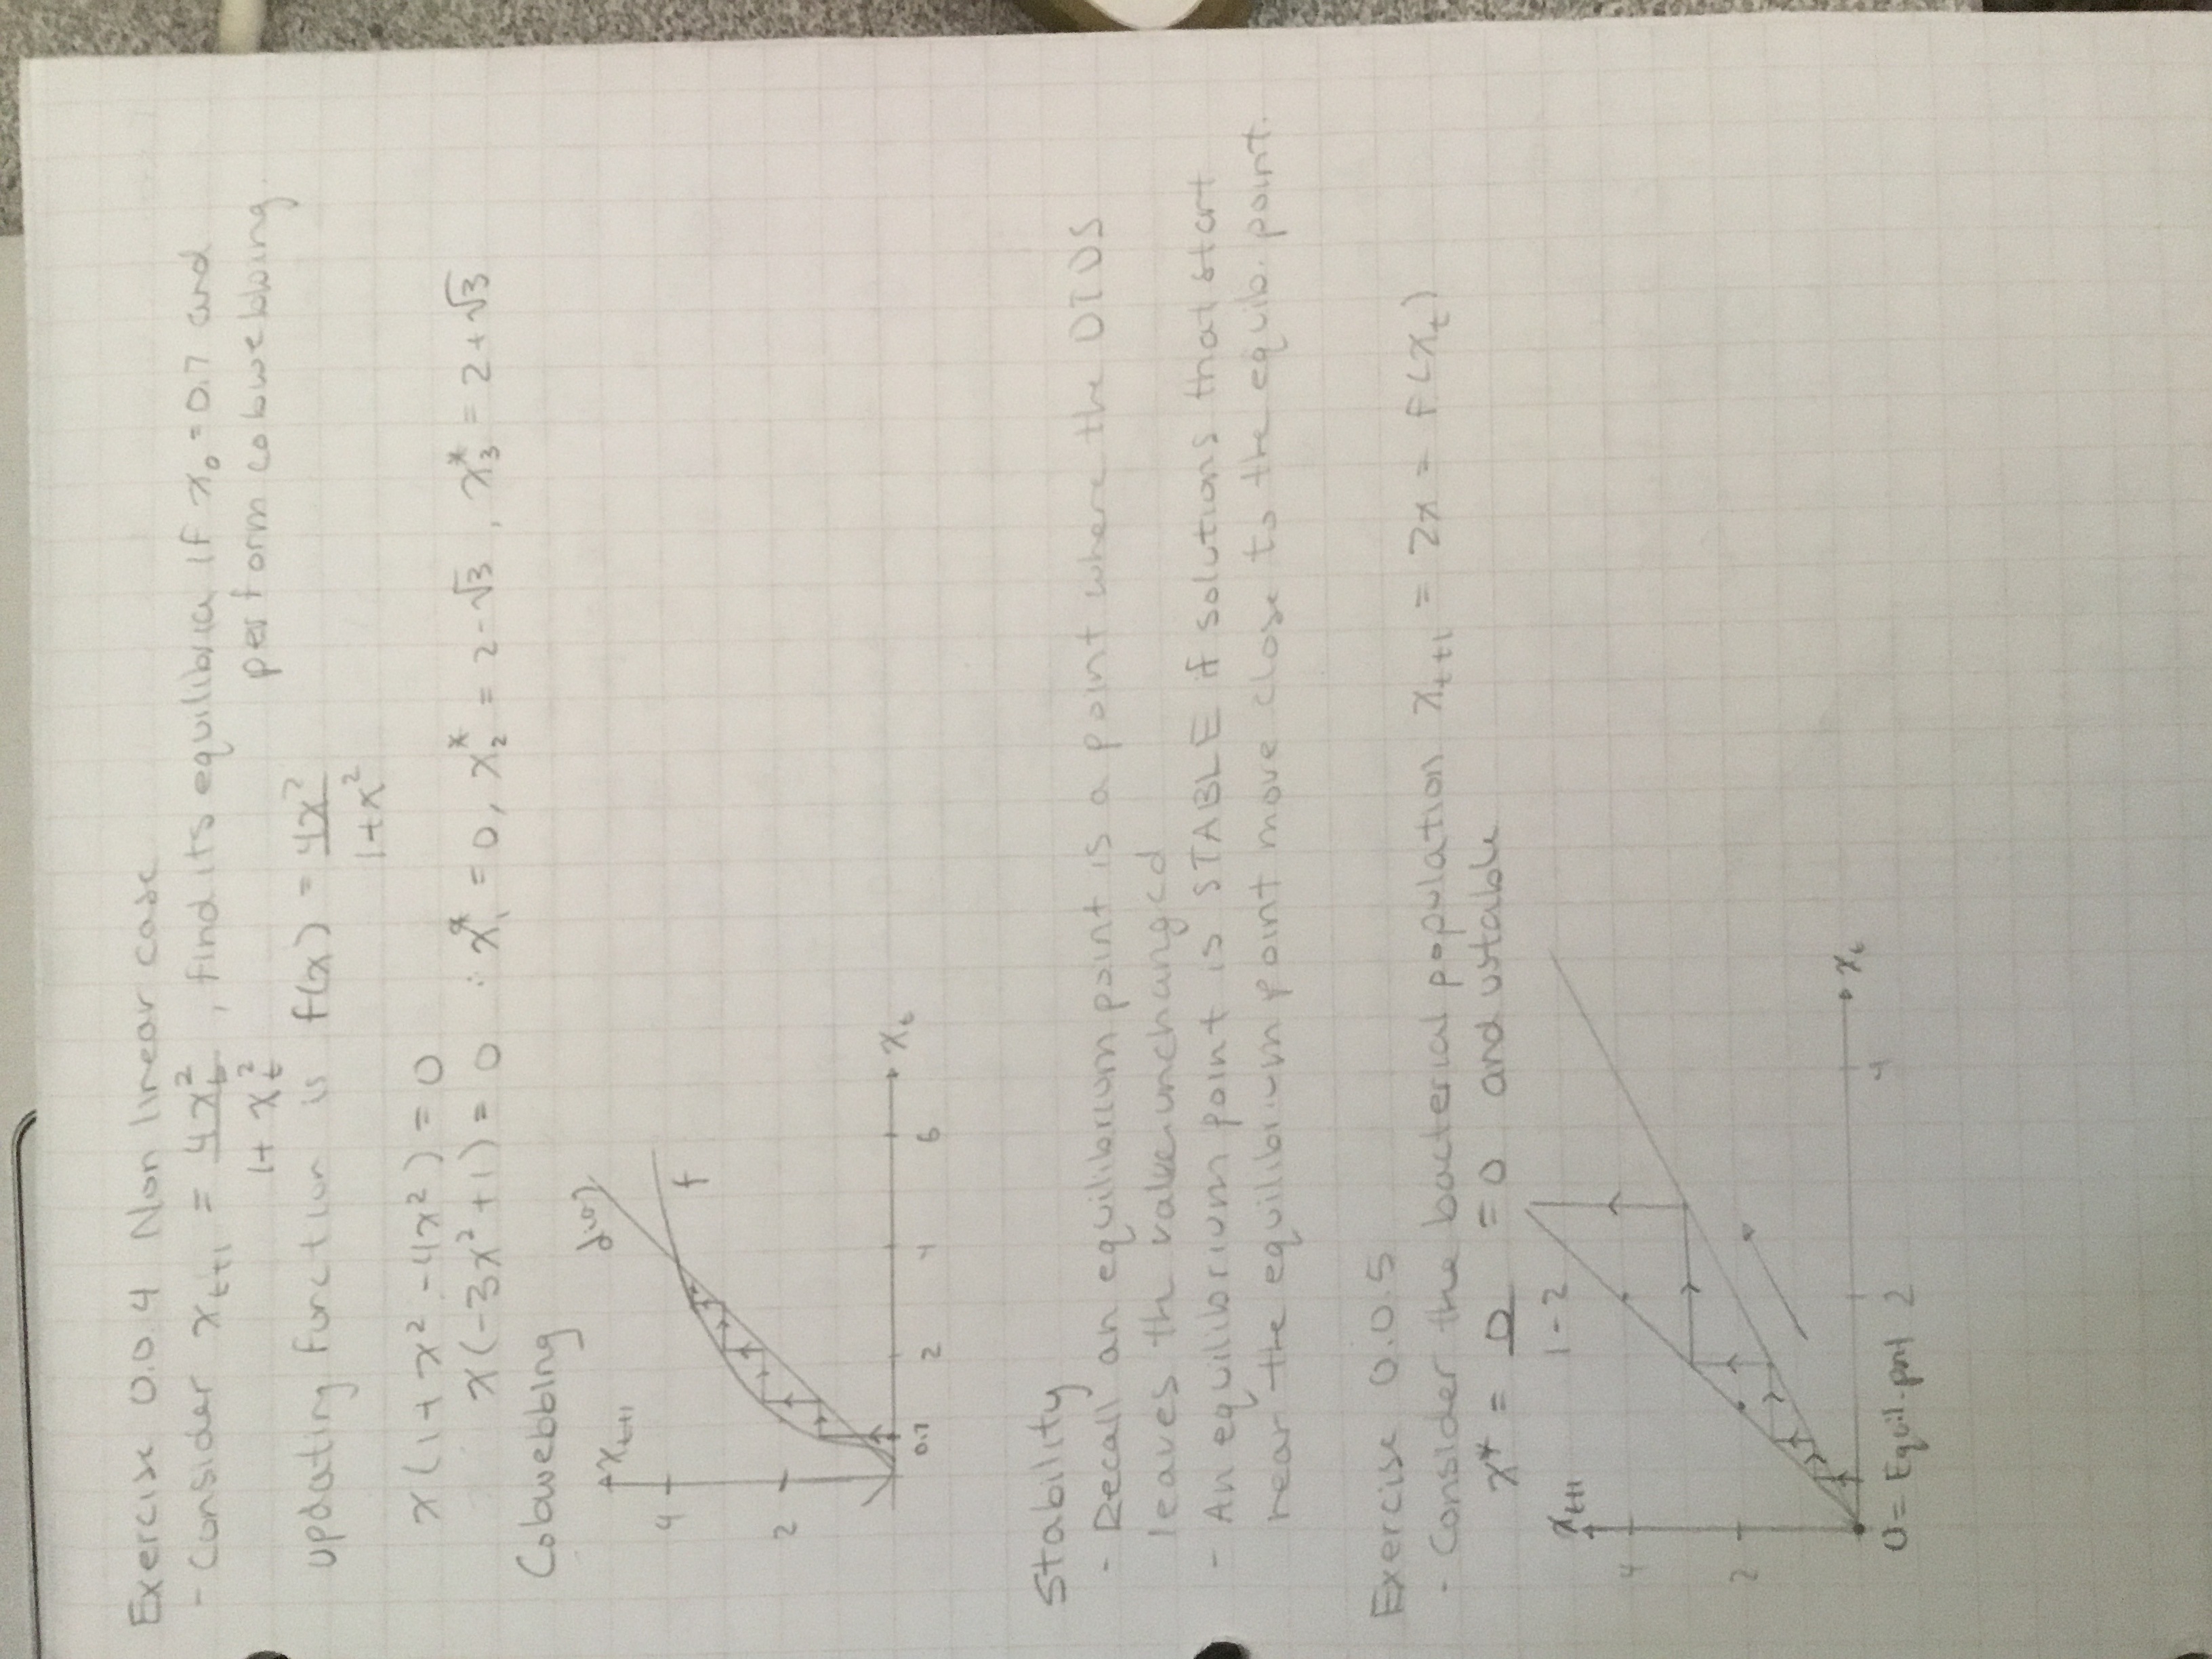 Exercise 0.0.4 Non linear case
- Consider xₜ₊₁ = 4xₜ² / 1+xₜ², find its equilibria if x₀ = 0.7 and
perform cobwebbing.
updating function is f(x) = 4x² / 1+x²
x(1+x²-4x²) = 0
x(-3x²+1) = 0 ∴ x₁* = 0, x₂* = 2-√3, x₃* = 2+√3
Cobwebbing
xₜ₊₁
4
2
f
0.7
2
4
6
xₜ
Stability
- Recall an equilibrium point is a point where the DTDS
leaves the value unchanged
- An equilibrium point is STABLE if solutions that start
near the equilibrium point move close to the equilib. point.
Exercise 0.0.5
- Consider the bacterial population xₜ₊₁ = 2x = f(xₜ)
x* = 0 / 1-2 = 0 and ustable
xₜ₊₁
4
2
2
4
xₜ
0 = Equil. point